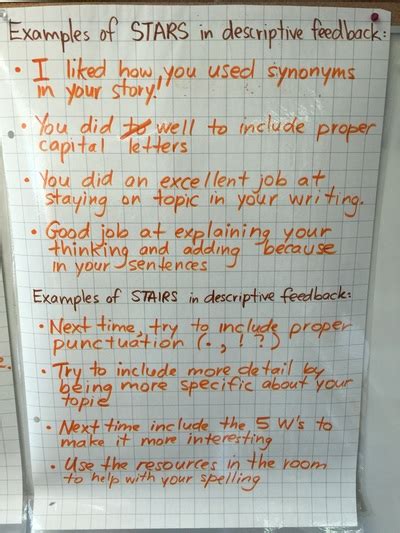 Examples of STARS in descriptive feedback:
• I liked how you used synonyms
in your story!
• You did to well to include proper
capital letters
• You did an excellent job at
staying on topic in your writing.
• Good job at explaining your
thinking and adding because
in your sentences
Examples of STAIRS in descriptive feedback:
• Next time, try to include proper
punctuation (. , ! ?)
• Try to include more detail by
being more specific about your
topic
• Next time include the 5 W's to
make it more interesting
• Use the resources in the room
to help with your spelling